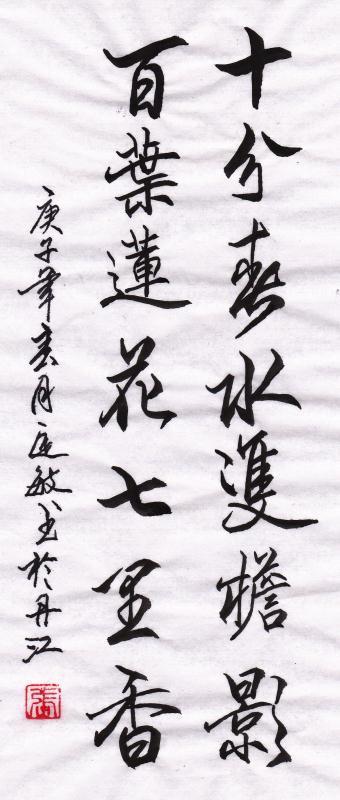 十分春水雙檐影
百葉蓮花七里香
庚子年月敏書於丹江
張